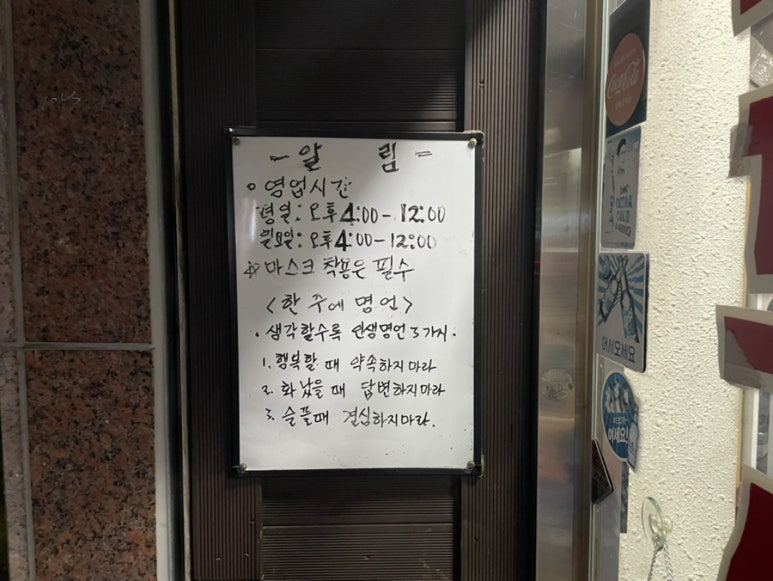 - 알 림 =
○ 영업시간
평일: 오후 4:00 - 12:00
일요일: 오후 4:00 - 12:00
※ 마스크 착용은 필수
<한 주에 명언>
· 생각할수록 인생명언 3가지.
1. 행복할 때 약속하지마라
2. 화 났을 때 답변하지마라
3. 슬플때 결심하지마라.
Coca-Cola
어서오세요
어세요!